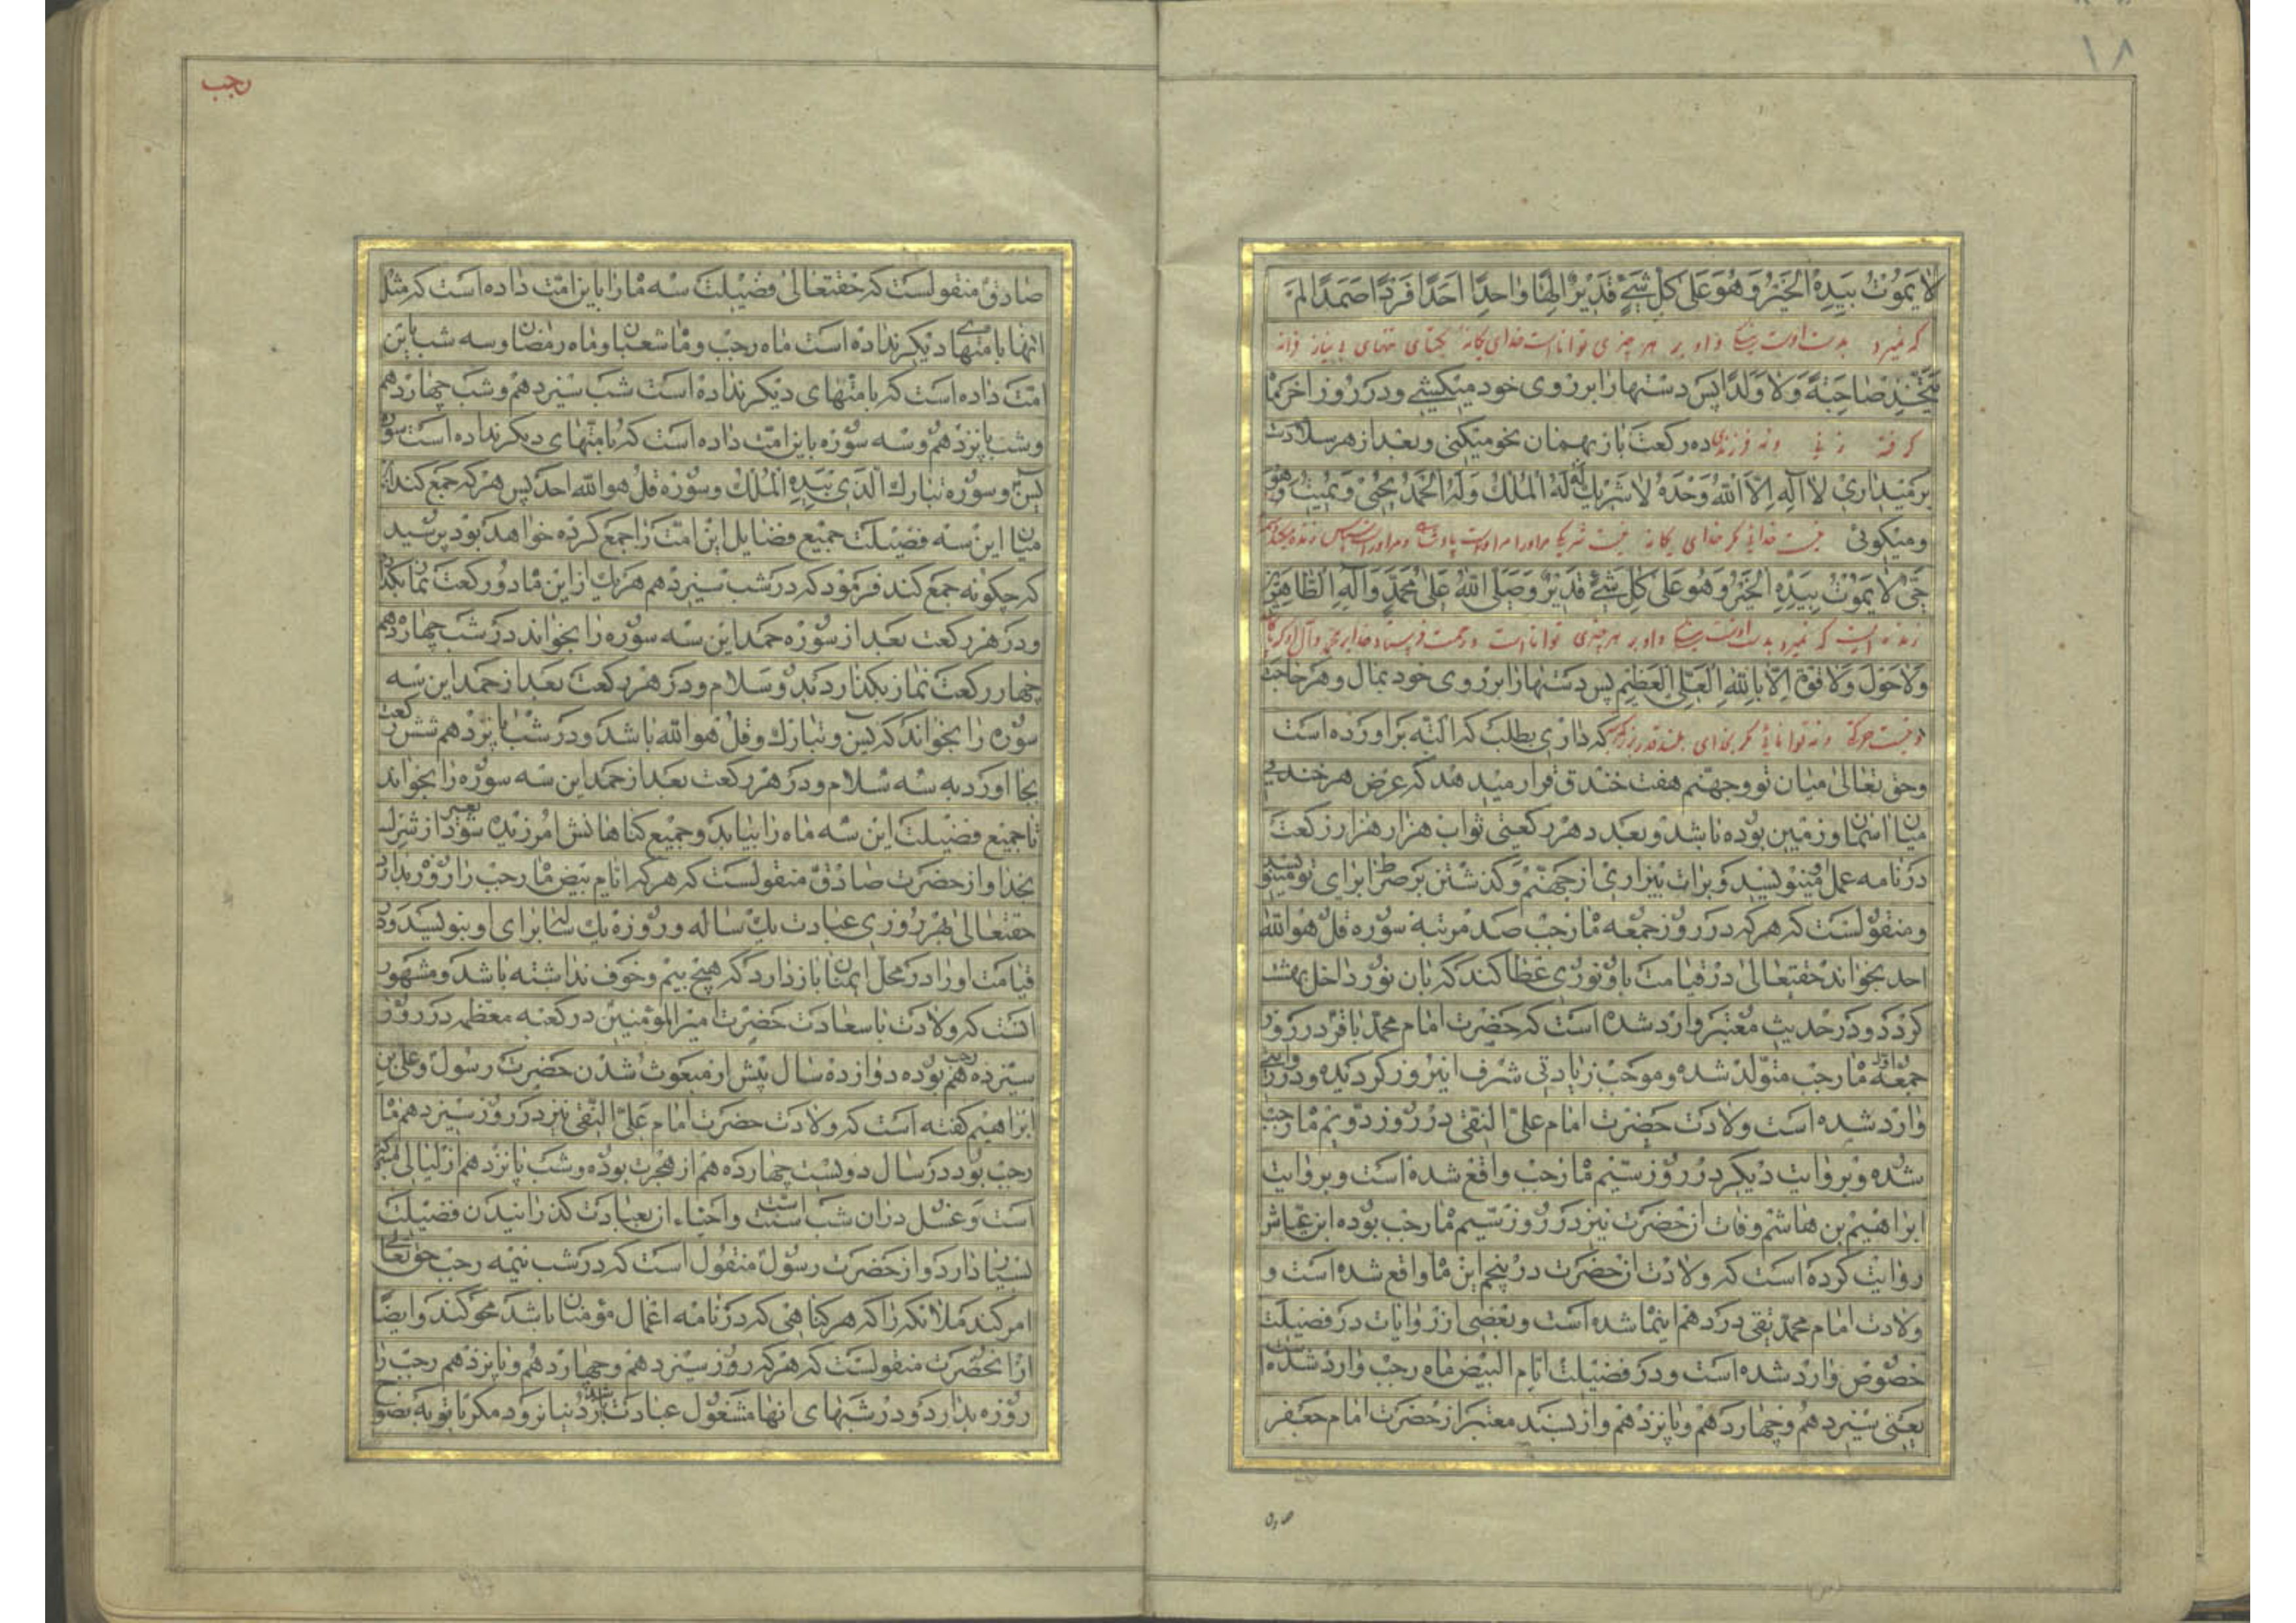 ١٨
لا يَمُوتُ بِيَدِهِ الْخَيْرُ وَهُوَ عَلى كُلِّ شَيْءٍ قَدِيرٌ اِلهًا واحِدًا اَحَدًا فَرْدًا صَمَدًا لَمْ
که نمیرد بدست اوست نیکی و او بر هر چیزی تواناست خدای یگانه یکتای تنهای بی نیاز فرا نه
يَتَّخِذْ صاحِبَةً وَلا وَلَدًا پس دستها را بر روی خود میکشی و در روز آخر ماه
گرفته زنی و نه فرزندی ده رکعت باز بهمان نحو میکنی و بعد از هر سلام دست
بر میداری لا اله الا الله وحده لا شريك له له الملك وله الحمد يحيي ويميت وهو
و میگوئی نیست خدائی مگر خدای یگانه نیست شریک مر او را مر او راست پادشاهی و مر او راست سپاس زنده میکند
حَيٌّ لا يَمُوتُ بِيَدِهِ الْخَيْرُ وَهُوَ عَلى كُلِّ شَيْءٍ قَدِيرٌ وَصَلَّى اللهُ عَلى مُحَمَّدٍ وَآلِهِ الطّاهِرِينَ
زنده ایست که نمیرد بدست اوست نیکی و او بر هر چیزی تواناست و رحمت فرستاد خدا بر محمد و آل او که پاکند
وَلا حَوْلَ وَلا قُوَّةَ اِلّا بِاللهِ الْعَلِيِّ الْعَظِيمِ پس دستها را بر روی خود بمال و هر حاجت
و نیست حرکة و نه توانائی مگر بخدای بلند قدر بزرگ که داری بطلب که البته بر آورده است
وحق تعالی میان تو و جهنم هفت خندق قرار میدهد که عرض هر خندقی
میان آسمان و زمین بوده باشد و بعدد هر رکعتی ثواب هزار هزار رکعت
در نامه عمل مینویسد و برات بیزاری از جهنم و گذشتن بر صراط برای تو مینویسد
و منقولست که هر که در روز جمعه ماه رجب صد مرتبه سوره قل هو الله
احد بخواند حقتعالی در قیامت باو نوری عطا کند که بان نور داخل بهشت
گردد و در حدیث معتبر وارد شده است که حضرت امام محمد باقر در روز
جمعه اول ماه رجب متولد شده و موجب زیادتی شرف اینروز گردیده و در روایتی
وارد شده است ولادت حضرت امام علی النقی در روز دویم ماه رجب
شده و بروایت دیگر در روز سیم ماه رجب واقع شده است و بروایت
ابراهیم بن هاشم وفات آنحضرت نیز در روز سیم ماه رجب بوده ابن عیاش
روایت کرده است که ولادت آنحضرت در پنجم این ماه واقع شده است و
ولادت امام محمد تقی در دهم اینماه شده است و بعضی از روایات در فضیلت
خصوص وارد شده است و در فضیلت ایام البیض ماه رجب وارد شده است
یعنی سیزدهم و چهاردهم و پانزدهم و از بسند معتبر از حضرت امام جعفر
صادق
رجب
صادق منقولست که حقتعالی فضیلت سه ماه را باین امت داده است که مثل
آنها بامتهای دیگر نداده است ماه رجب و ماه شعبان و ماه رمضان و سه شب باین
امت داده است که بامتهای دیگر نداده است شب سیزدهم و شب چهاردهم
و شب پانزدهم و سه سوره باین امت داده است که بامتهای دیگر نداده است سوره
یس و سوره تبارك الذی بیده الملك و سوره قل هو الله احد پس هر که جمع کند
میان این سه فضیلت جمیع فضایل این امت را جمع کرده خواهد بود پرسید
که چگونه جمع کند فرمود که در شب سیزدهم هر یك از این ماه دو رکعت نماز بکند
و در هر رکعت بعد از سوره حمد این سه سوره را بخواند در شب چهاردهم
چهار رکعت نماز بگذارد بدو سلام و در هر رکعت بعد از حمد این سه
سوره را بخواند که یس و تبارك و قل هو الله باشد و در شب پانزدهم شش رکعت
بجا آورد به سه سلام و در هر رکعت بعد از حمد این سه سوره را بخواند
تا جمیع فضیلت این سه ماه را بیابد و جمیع گناهانش آمرزیده شود بغیر از شرك
بخدا و از حضرت صادق منقولست که هر که ایام بیض ماه رجب را روزه بدارد
حقتعالی بهر روزی عبادت یك ساله و روزه یك ساله برای او بنویسد و در
قیامت او را در محل ایمنان باز دارد که هیچ بیم و خوف نداشته باشد و مشهور
است که ولادت با سعادت حضرت امیر المؤمنین در کعبه معظمه در روز
سیزدهم رجب بوده دوازده سال پیش از مبعوث شدن حضرت رسول و علی بن
ابراهیم گفته است که ولادت حضرت امام علی النقی نیز در روز سیزدهم ماه
رجب بود در سال دویست چهاردهم از هجرت بوده و شب پانزدهم از لیالی متبرکه
است و غسل در آن شب سنت است و احیاء آن بعبادت گذرانیدن فضیلت
بسیار دارد و از حضرت رسول منقول است که در شب نیمه رجب حق تعالی
امر کند ملائکه را که هر گناهی که در نامه اعمال مؤمنان باشد محو کنند و ایضا
از آنحضرت منقولست که هر که روز سیزدهم و چهاردهم و پانزدهم رجب را
روزه بدارد و در شبهای آنها مشغول عبادت باشد از دنیا نرود مگر با توبه نصوح